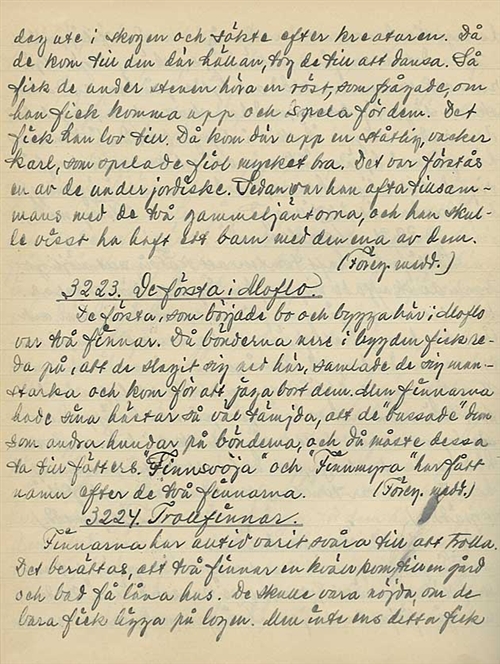 dag ute i skogen och sökte efter kreaturen. Då
de kom till den där hällan, tog de till att dansa. Så
fick de under stenen höra en röst, som frågade, om
han fick komma upp och spela för dem. Det
fick han lov till. Då kom där upp en ståtlig, vacker
karl, som spelade fiol mycket bra. Det var förstås
en av de underjordiske. Sedan var han ofta tillsam-
mans med de två gammeljäntorna, och han skul-
le visst ha haft ett barn med den ena av dem.
(Föreg. medd.)
3223. De första i Moflo.
De första, som började bo och bygga här i Moflo
var två finnar. Då bönderna nere i bygden fick re-
da på, att de slagit sig ned här, samlade de sig man-
starka och kom för att jaga bort dem. Men finnarna
hade sina hästar så väl tämjda, att de bussade dem
som andra hundar på bönderna, och då måste dessa
ta till fötters. "Finnsvöja" och "Finnmyra" har fått
namn efter de två finnarna. (Föreg. medd.)
3224. Trollfinnar.
Finnarna har alltid varit svåra till att trolla.
Det berättas, att två finnar en kväll kom till en gård
och bad få låna hus. De skulle vara nöjda, om de
bara fick ligga på logen. Men inte ens detta fick